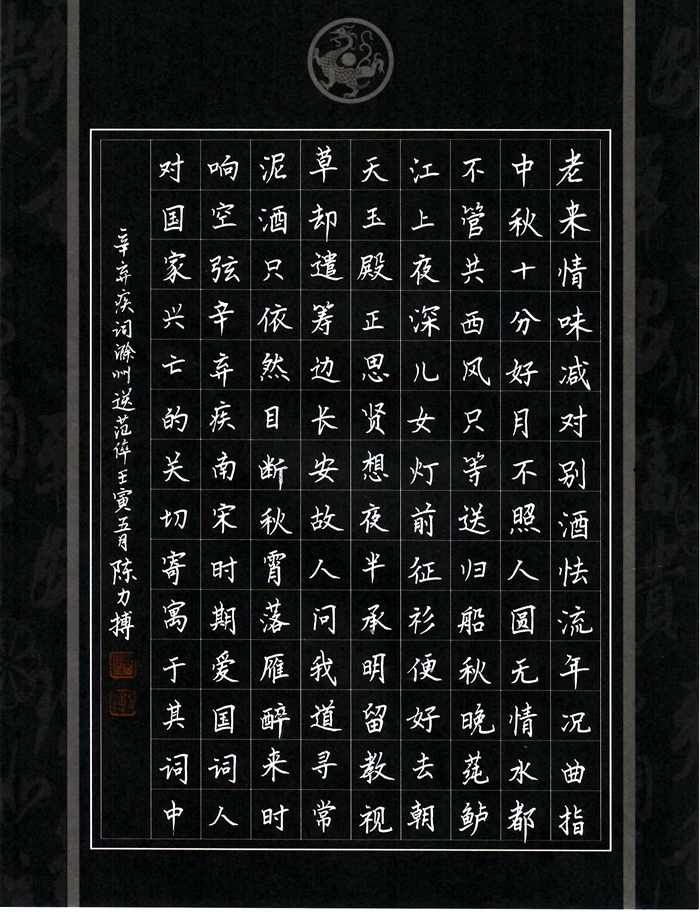 老来情味减对别酒怯流年况曲指
中秋十分好月不照人圆无情水都
不管共西风只等送归船秋晚莼鲈
江上夜深儿女灯前征衫便好去朝
天玉殿正思贤想夜半承明留教视
草却遣筹边长安故人问我道寻常
泥酒只依然目断秋霄落雁醉来时
响空弦辛弃疾南宋时期爱国词人
对国家兴亡的关切寄寓于其词中
辛弃疾词滁州送范倅壬寅五月陈力搏